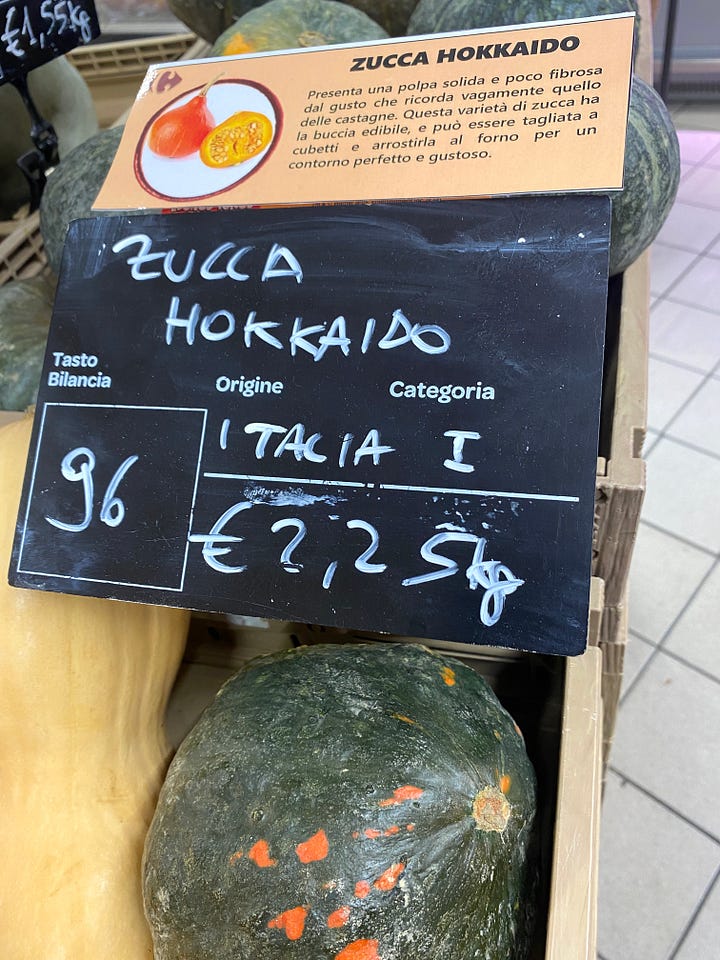 €1,55kg
ZUCCA HOKKAIDO
Presenta una polpa solida e poco fibrosa
dal gusto che ricorda vagamente quello
delle castagne. Questa varietà di zucca ha
la buccia edibile, e può essere tagliata a
cubetti e arrostirla al forno per un
contorno perfetto e gustoso.
ZUCCA
HOKKAIDO
Tasto
Bilancia
Origine Categoria
96
ITALIA I
€ 2,25kg